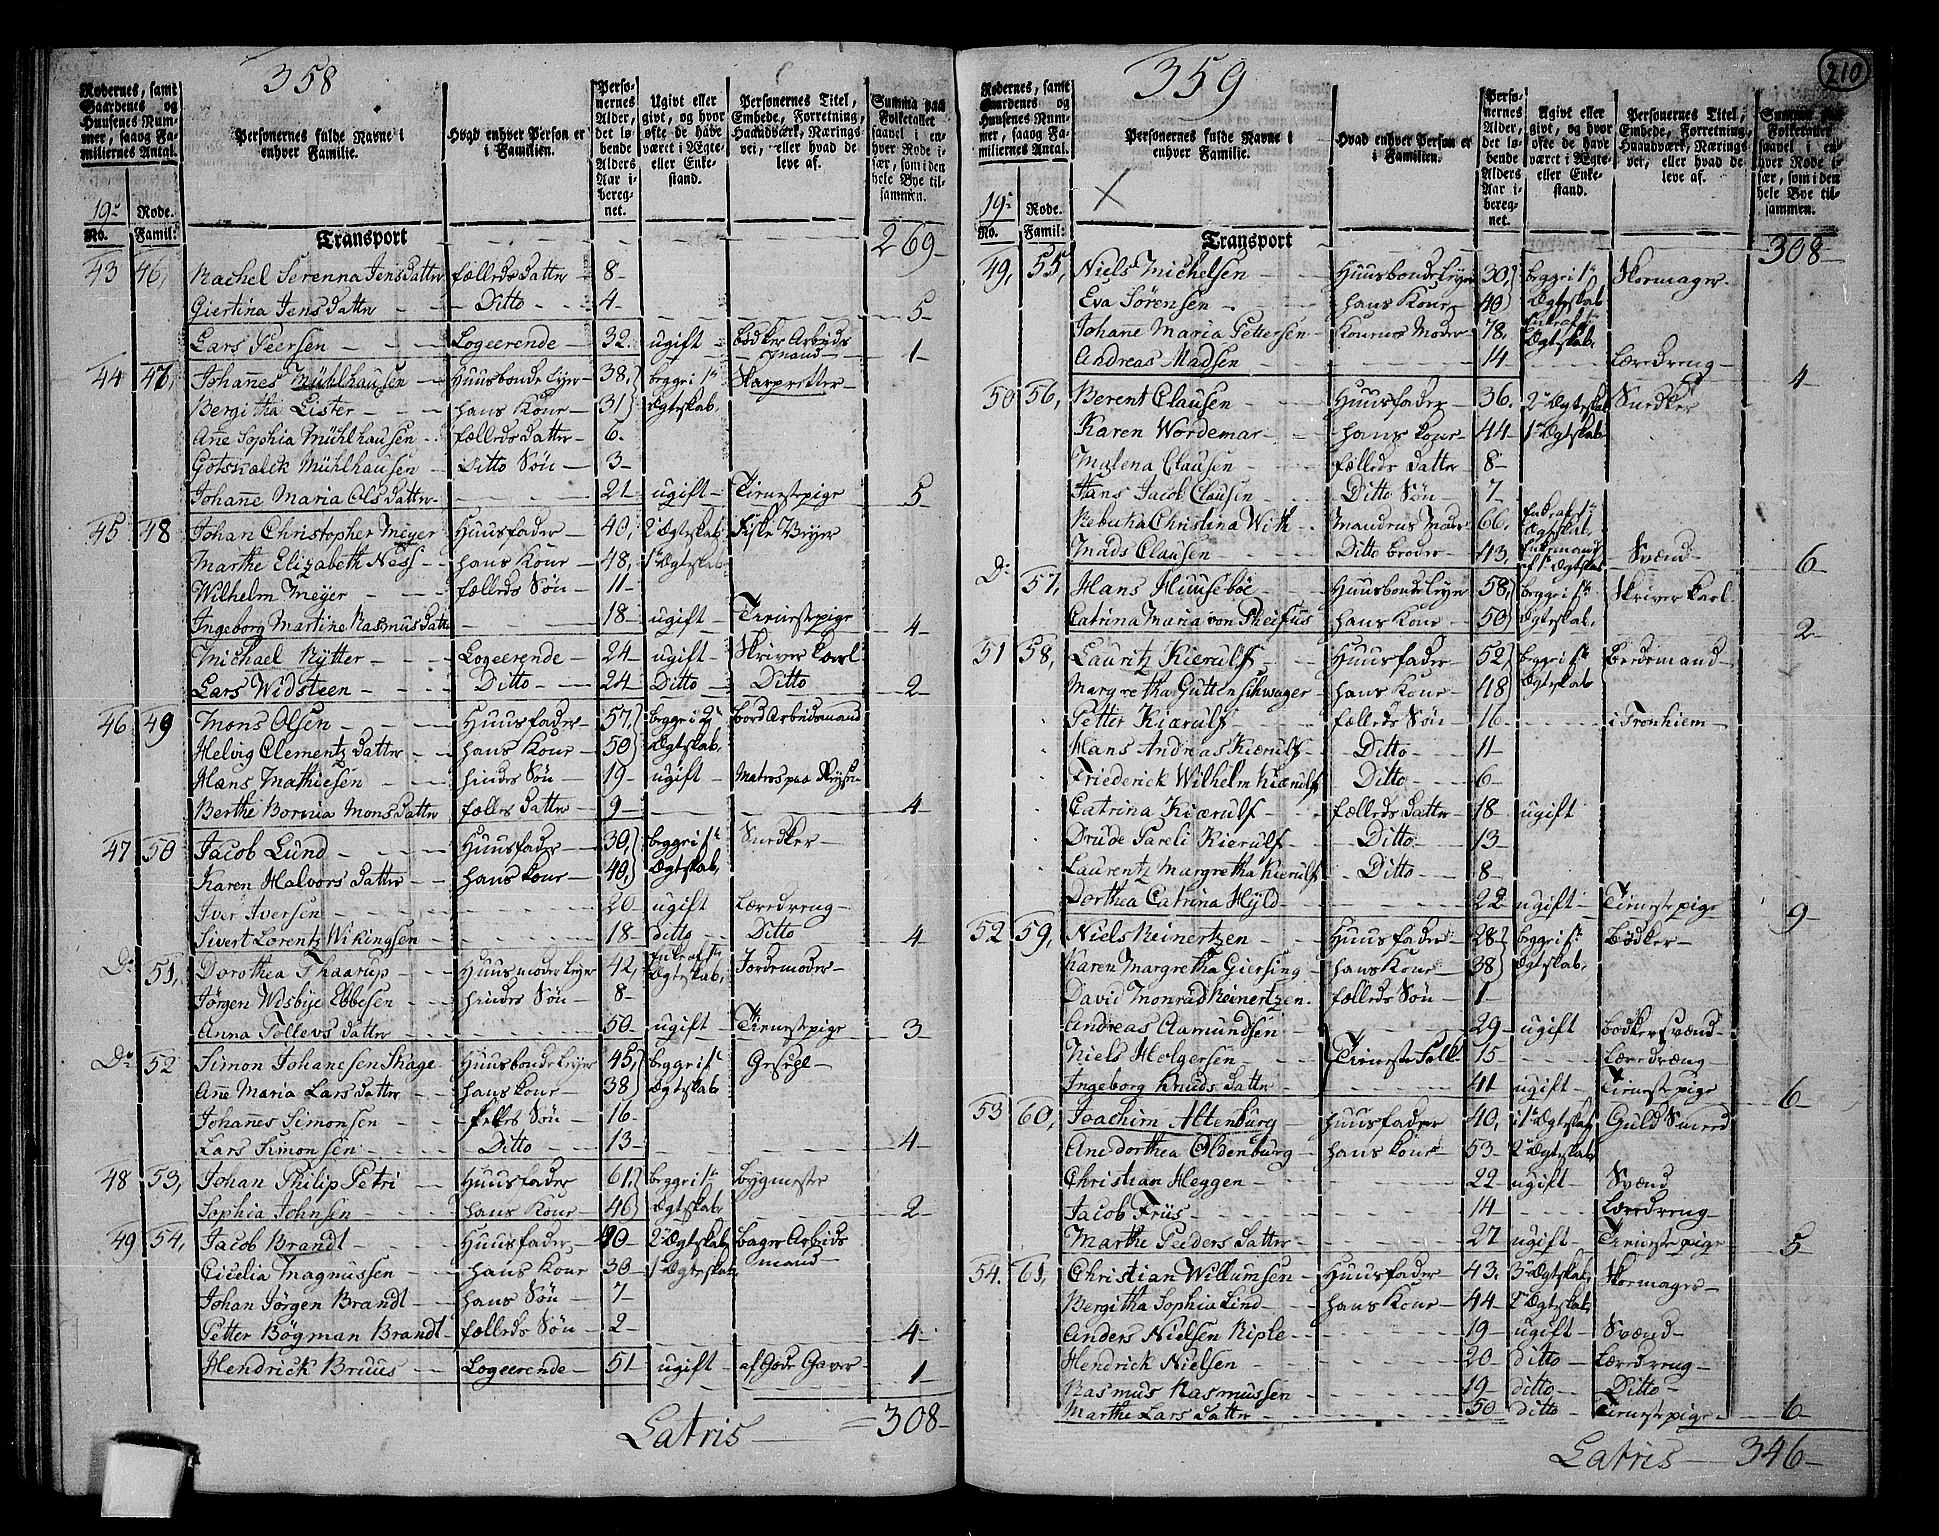 358
Rodernes, samt Gaardenes og Huusenes Nummer, saaog Familiernes Antal.
Personernes fulde Navne i enhver Familie.
Hvad enhver Person er i Familien.
Personernes Alder, det løbende Alders Aar iberegnet.
Ugivt eller givt, og hvor ofte de have været i Ægte- eller Enkestand.
Personernes Titel, Embede, Forretning, Haandværk, Næringsvei, eller hvad de leve af.
Summa paa Folketallet saavel i enhver Rode især, som i den hele Bye tilsammen.
19de Rode.
No. Famil:
Transport 269
43 46, Rachel Serenna Jensdatter fælleds datter 8
Giertina Jensdatter Ditto 4 5
Lars Peersen Logeerende 32. ugift Bødker Arbeidsmand 1
44 47, Johannes Mühlhausen Huusbonde Leyer 38, begge i 1te Skarpretter
Bergitha Lister hans Kone 31 Ægteskab.
Ane Sophia Mühlhausen fælleds datter 6.
Gotswalck Mühlhausen Ditto Søn 3
Johanne Maria Olsdatter 21 ugift Tienestepige 5
45 48 Johan Christopher Meyer Huusfader 40, 2de Ægteskab. Fiske Veyer
Marthe Elizabeth Ness hans Kone 48, 1te Ægteskab
Wilhelm Meyer fælleds Søn 11
Ingeborg Martine Rasmusdatter 18 ugift Tienestepige 4
Michael Rytter Logeerende 24 ugift Skriver karl
Lars Widsteen Ditto 24 Ditto Ditto 2
46 49 Mons Olsen Huusfader 57, begge i 2de Bord Arbeidsmand
Helvig Clementz datter hans Kone 50 Ægteskab,
Hans Mathiesen hindes Søn 19 ugift Matros paa Reysen
Berthe Bornia Monsdatter fælles datter 9 4
47 50 Jacob Lund Huusfader 39, begge i 1te Snedker
Karen Halvors datter hans kone 40, Ægteskab,
Iver Iversen 20 ugift Læredreng
Sivert Lorentz Wikingsen 18 ditto Ditto 4
Do 51, Dorothea Thaarup Huusmoder Leyer 42, Enke af 1te Ægteskab, Jordemoder
Jørgen Wisbye Ebbesen hindes Søn 8
Anna Tollevs datter 50 ugift Tienestepige 3
Do 52 Simon Johanesen Skage Huusbonde Leyer 45, begge i 1te
Ane Maria Lars datter hans kone 38 Ægteskab
Johannes Simonsen fælles Søn 16
Lars Simonsen Ditto 13 4
48 53, Johan Philip Petri Huusfader 61, begge i 1te Bygmester
Sophia Johnsen hans Kone 46 Ægteskab 2
49 54, Jacob Brandt Huusfader 40 2de Ægteskab Bager Arbeidsmand
Cicelia Magnussen hans Kone 30 1te Ægteskab
Johan Jörgen Brandt hans Søn 7
Petter Bögman Brandt fælleds Søn 2 4
Hendrick Bruus Logeerende 51 ugift af Gode Gaver 1
Latris 308
359
210
Rodernes, samt Gaardenes og Huusenes Nummer, saaog Familiernes Antal.
Personernes fulde Navne i enhver Familie.
Hvad enhver Person er i Familien.
Personernes Alder, det løbende Alders Aar iberegnet.
Ugivt eller givt, og hvor ofte de have været i Ægte- eller Enkestand.
Personernes Titel, Embede, Forretning, Haandværk, Næringsvei, eller hvad de leve af.
Summa paa Folketallet saavel i enhver Rode især, som i den hele Bye tilsammen.
19de Rode.
No. Famil:
Transport 308
49, 55, Niels Michelsen Huusbonde Leyer 30, begge i 1te Skomager
Eva Sörensen hans Kone 40 Ægteskab
Johane Maria Pettersen Konenes Moder 78, Enke af 1te Ægteskab,
Andreas Madsen 14 Læredreng 4
50 56, Berent Clausen Huusfader 36. 2de Ægteskab Snedker
Karen Wordemar hans kone 44 1te Ægteskab
Malena Clausen fælleds datter 8
Hans Jacob Clausen Ditto Søn 7
Rebecka Christina With Mandens Moder 66, Enke af 1te Ægteskab,
Mads Clausen Ditto broder 43, Enkemand af 1te Ægteskab Svænd 6
Do 57, Hans Huusebøe Huusbonde Leyer 58, begge i 1te Skriver karl
Catrina Maria von Theifus hans Kone 50 Ægteskab, 2
51 58, Lauritz Kierulf Huusfader 52 begge i 1te Bedemand
Margretha Guttenschwager hans Kone 48 Ægteskab
Petter Kierulf fælleds Søn 16 i Tronhiem
Hans Andreas Kierulf Ditto 11
Friederick Wilhelm Kierulf Ditto 6
Catrina Kierulf fælleds datter 18 ugift
Drude Pareli Kierulf Ditto 13
Laurentz Margretha Kierulf Ditto 8
Dorthea Catrina Hyld 22 ugift Tienestepige 9
52 59, Niels Reinertzen Huusfader 28 begge i 1te Bödker
Karen Margretha Giersing hans Kone 38 Ægteskab,
David Monrad Reinertzen fælleds Søn 1
Andreas Aamundsen 29 ugift Bödker svænd
Niels Holgersen Tieneste Folk 15 Læredræng
Ingeborg Knuds datter 41 ugift Tienestepige 6
53 60, Joachim Altenburg Huusfader 40, i 1te Ægteskab Guld Smed
Ane dorthea Oldenburg hans kone 53 2de Ægteskab
Christian Heggen 22 ugift Svænd
Jacob Friis 14 Læredreng
Marthe Peders datter 27 ugift Tienestepige 5
54. 61, Christian Willumsen Huusfader 43, 3de Ægteskab, Skomager
Bergitha Sophia Lind hans Kone 44 2de Ægteskab,
Anders Nielsen Riple 19 ugift Svænd
Hendrick Nielsen 20 ditto Læredreng
Rasmus Rasmussen 19 ditto Ditto
Marthe Lars datter 50 ditto Tienestepige 6
Latris 346